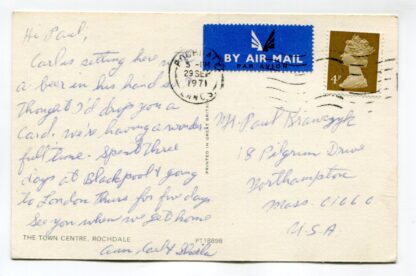 Hi Paul,
Carl is sitting here w
a beer in his hand so
thought I'd drop you a
card. We're having a wonder
full time. Spent three
days at Blackpool & going
to London Thurs for few days
See you when we get home
Ann Carl & Sheila
THE TOWN CENTRE, ROCHDALE
PT18898
PRINTED IN GREAT BRITAIN
ROCHDALE
5 - PM
29 SEP
1971
LANCS.
BY AIR MAIL
PAR AVION
4P
Mr. Paul
18 Pilgrim Drive
Northampton
Mass. 01060
U.S.A